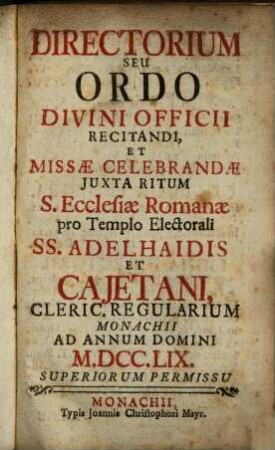 DIRECTORIUM
SEU
ORDO
DIVINI OFFICII
RECITANDI,
ET
MISSÆ CELEBRANDÆ
JUXTA RITUM
S. Ecclesiæ Romanæ
pro Templo Electorali
SS. ADELHAIDIS
ET
CAJETANI,
CLERIC. REGULARIUM
MONACHII
AD ANNUM DOMINI
M.DCC.LIX.
SUPERIORUM PERMISSU
MONACHII,
Typis Joannis Christophori Mayr.